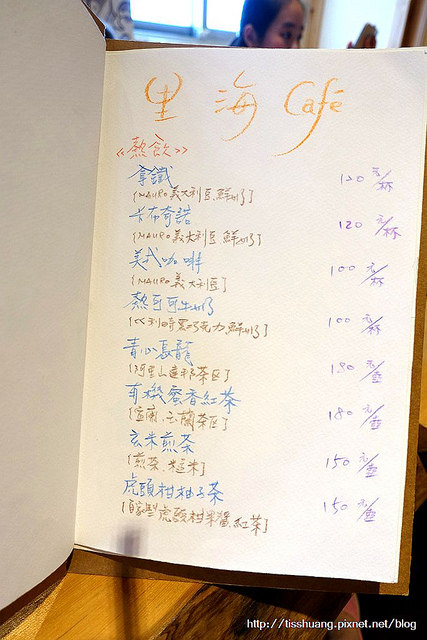 里海 Café
《熱飲》
拿鐵 120元/杯
[MAURO義大利豆.鮮奶]
卡布奇諾 120元/杯
[MAURO義大利豆.鮮奶]
美式咖啡 100元/杯
[MAURO義大利豆]
熱可可牛奶 100元/杯
[比利時黑巧克力.鮮奶]
青心烏龍 180元/壺
[阿里山達邦茶區]
有機蜜香紅茶 180元/壺
[宜蘭.茶區]
玄米煎茶 150元/壺
[煎茶.糙米]
虎頭柑柚子茶 150元/壺
[自家製虎頭柑果醬.紅茶]
http://tisshuang.pixnet.net/blog